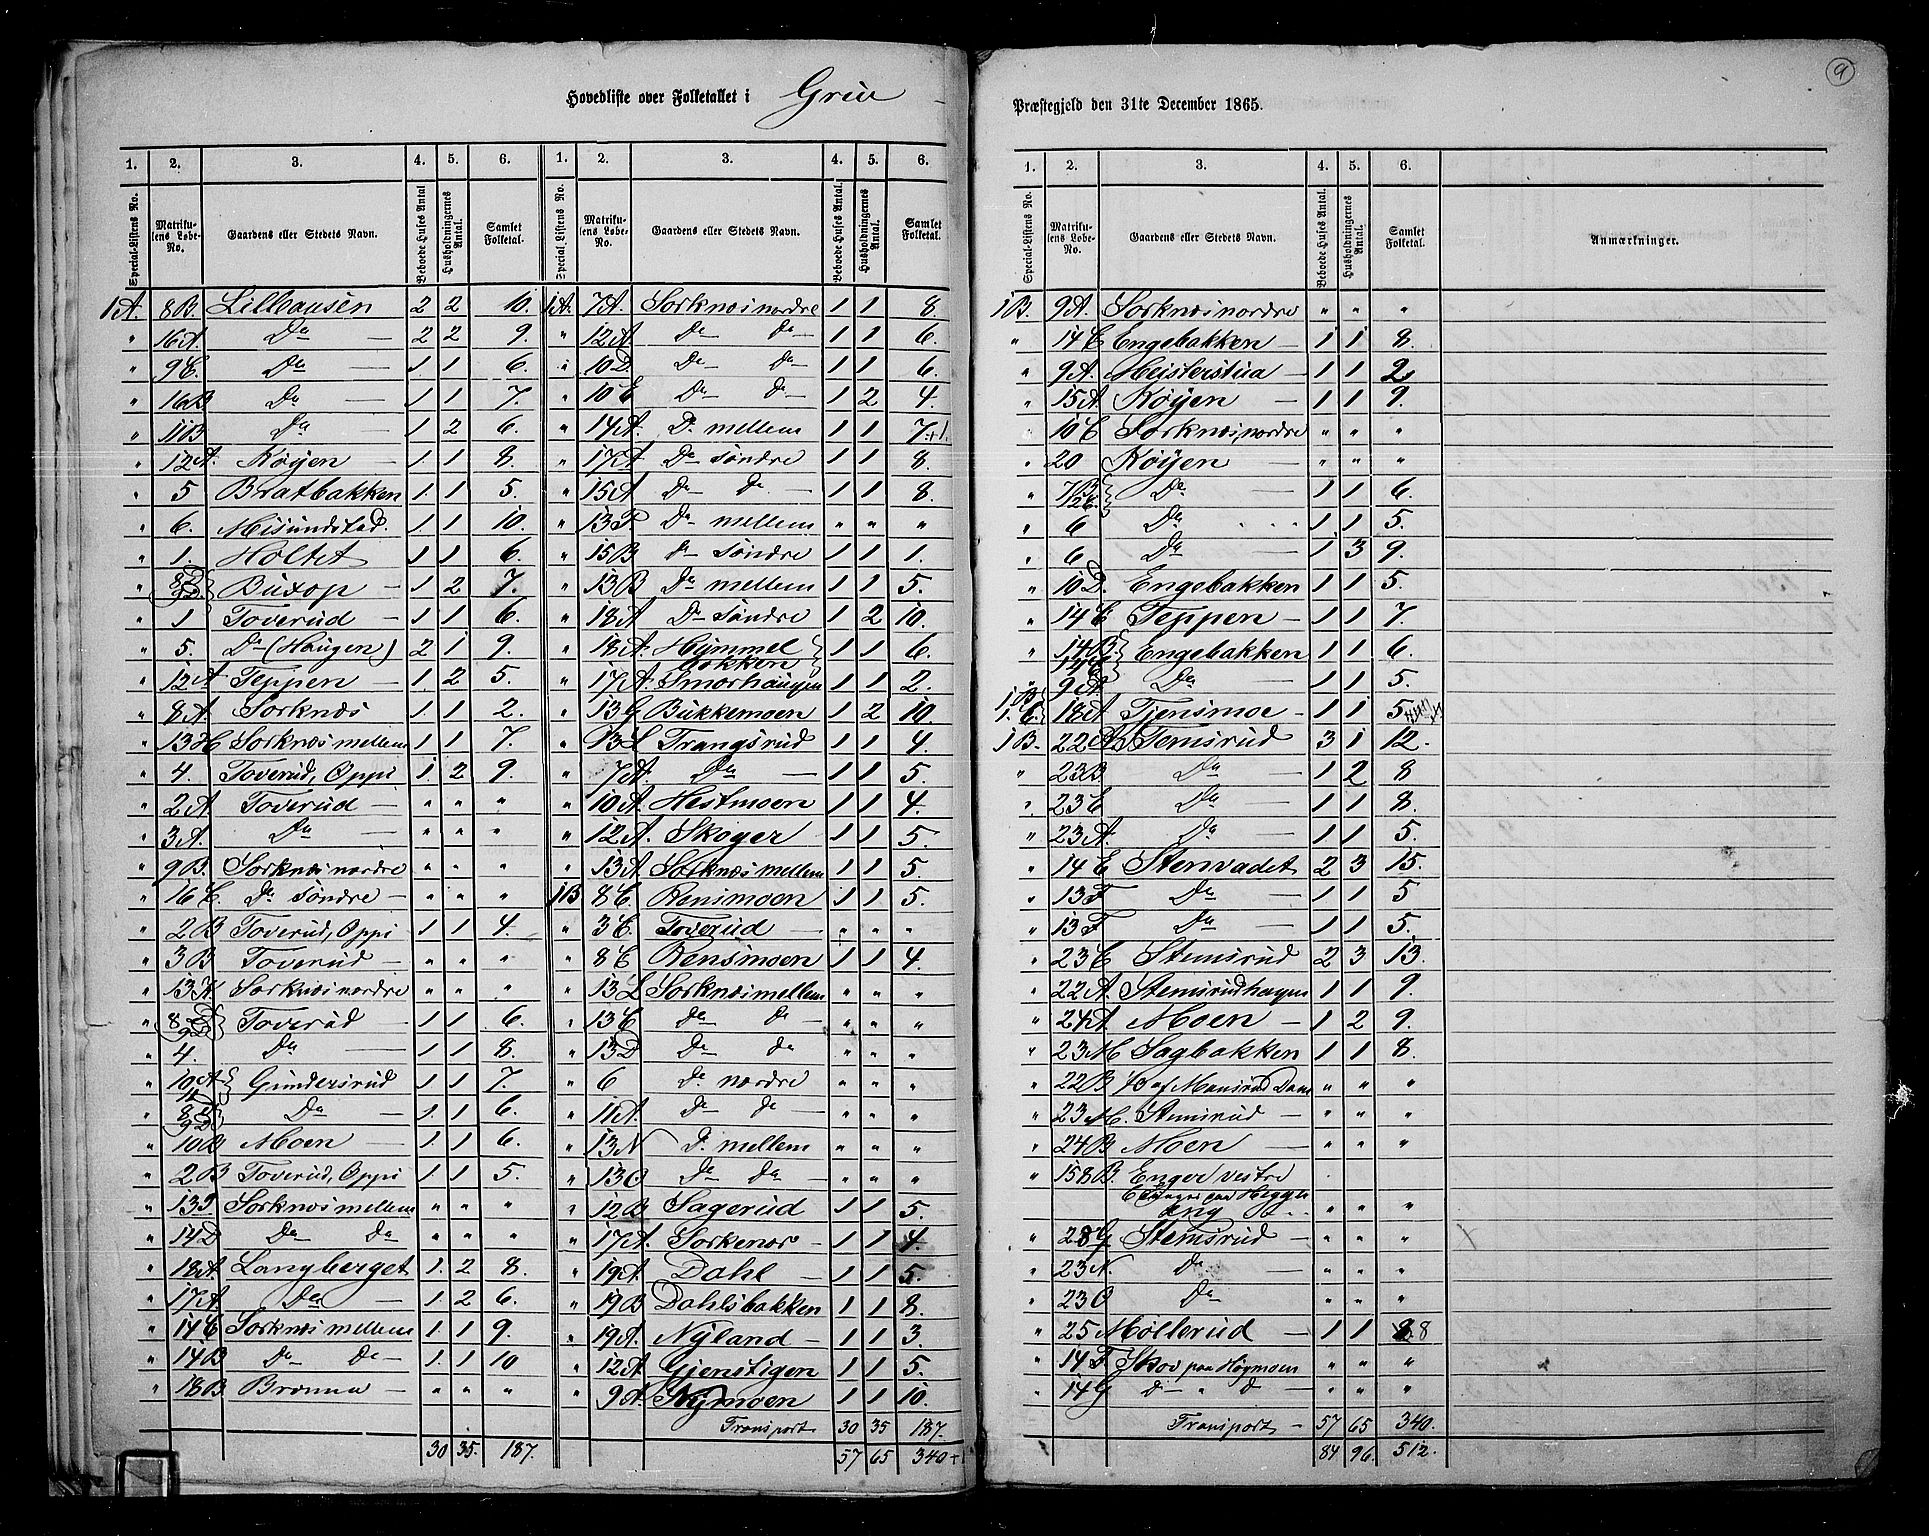 9
Hovedliste over Folketallet i Grue Præstegjeld den 31te December 1865.
1. 2. 3. 4. 5. 6. 1. 2. 3. 4. 5. 6.
Special-Listens No. Matrikulens Løbe-No. Gaardens eller Stedets Navn. Beboede Huses Antal Husholdningernes Antal. Samlet Folketal. Special-Listens No. Matrikulens Løbe-No. Gaardens eller Stedets Navn. Beboede Huses Antal. Husholdningernes Antal. Samlet Folketal.
1A. 8B. Lilhausen 2 2 10.
" 16A. Do 2 2 9.
" 9C. Do 1 1 6.
" 16B Do 1 1 7.
" 11B Do 1 2 6.
" 12A. Køyen 1. 1 8.
" 5 Bratbakken 1. 1 5.
" 6. Misundstad. 1 1 10.
" 1. Holtet 1 1 6.
" Buxop 1 2 7.
" 1 Toverud 1 1 6.
" 5. Do (Haugen) 2 1 9.
" 12A Teppen 1. 2 5.
" 8A. Sorknæs 1. 1 2.
" 13H Sorknæs mellem 1 1 7.
" 4. Toverud, Oppi 1. 2 9.
" 2A Toverud " " "
" 3A. Do " " "
" 9B. Sorknæs nordre " " "
" 16C. Do søndre " " "
" 2B Toverud, Oppi 1 1 4.
" 3B Toverud " " "
" 13K Sorknæs nordre " " "
" 8D 9D Toverud 1 1 6.
" 4. Do 1 1 8.
" 10A Gundersrud 1 1 7.
" 8D 9D Do 1. 1 6.
" 10B Moen 1. 1 6.
" 2B Toverud, Oppi 1 1 5.
" 13I Sorknæs mellem " " "
" 14D Do Do " " "
" 18A Langberget 1. 2 8.
" 17A Do 1. 2 6.
" 14C Sorknæs mellem 1. 1 9.
" 14B Do Do 1. 1 10
" 18B Brønna " " "
30 35. 187.
1A. 7A. Sorknæs nordre 1 1 8.
" 12A Do Do 1 1 6.
" 10D Do Do 1 1 6.
" 10E Do Do 1 2 4.
" 14A. Do mellem 1 1 7.+1.
" 17A Do søndre 1 1 8.
" 15A Do Do 1 1 8.
" 13P. Do mellem " " "
" 15B Do søndre 1 1 1.
" 13B Do mellem 1 1 5.
" 18A Do søndre 1 2 10.
" 18A. Hymmelbakken 1 1 6.
" 17A. Smørhaugen 1 1 2.
" 13G Bukkemoen 1 2 10.
" 13L Trangsrud 1 1 4.
" 7A. Do 1 1 5.
" 10A Hestmoen 1 1 4.
" 12A. Skøger 1 1 5.
" 13A Sorknæs mellem 1 1 5.
1B 8C Rensmoen 1 1 5.
" 3C. Toverud " " "
" 8C Rensmoen 1 1 4.
" 13L Sorknæs mellem " " "
" 13C Do Do " " "
" 13D Do Do " " "
" 6 Do nordre " " "
" 11A. Do Do " " "
" 13N Do mellem " " "
" 13O Do Do " " "
" 12B Sagerud 1 1 5.
" 17A. Sorkenor 1 1 4.
" 19A. Dahl 1 1 5.
" 19B Dahlsbakken 1 1 8.
" 19A. Nyland 1 1 3.
" 12A Gjenstigen 1 1 5.
" 9A. Nymoen 1 1 10.
Transport 30 35 187.
57 65 340+1
1. 2. 3. 4. 5. 6.
Special-Listens No. Matrikulens Løbe-No. Gaardens eller Stedets Navn. Beboede Huses Antal. Husholdningernes Antal. Samlet Folketal. Anmærkninger.
1B. 9A. Sorknæs nordre " " "
" 14C Engebakken 1 1 8.
" 9A. Mejsterstua 1 1 2.
" 15A Køyen 1 1 9.
" 10C Sorknæs nordre " " "
" 20 Køyen " " "
" 7B 12C. Do 1 1 6.
" 6 Do 1 1 5.
" 6 Do 1 3 9.
" 10D. Engebakken 1 1 5.
" 14C Teppen 1 1 7.
" 14B Engebakken 1 1 6.
" 9A. Do 1 1 5.
1B 1.C. 18A Tjensmoe 1 1 5
1B. 22A Stemsrud 3 1 12.
" 23B Do 1 2 8
" 23E Do 1 1 8.
" 23A. Do 1 1 5.
" 14E Stenvadet 2 3 15.
" 13F Do 1 1 5
" 13F Do 1 1 5.
" 23C Stemsrud 2 3 13.
" 22A. Stemsrudhagen 1 1 9.
" 24A Moen 1 2 9.
" 23M Sagbakken 1 1 8.
" 22B ½ af Mansrud Dam " " "
" 23M. Stemsrud " " "
" 24B Moen " " "
" 158B. Enger vestre
Eng " " "
" 28G Stemsrud " " "
" 23N. Do " " "
" 23O Do " " "
" 25 Møllerud 1 1 8
" 14F Skov paa Høgmoen " " "
" 14G D " D " " "
Transport 57 65 340.
84 96. 512.